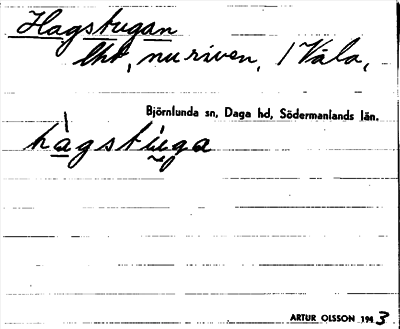 Hagstugan
lht, nu riven, 1 Våla,
Björnlunda sn, Daga hd, Södermanlands län.
hàgstùga
ARTUR OLSSON 1943